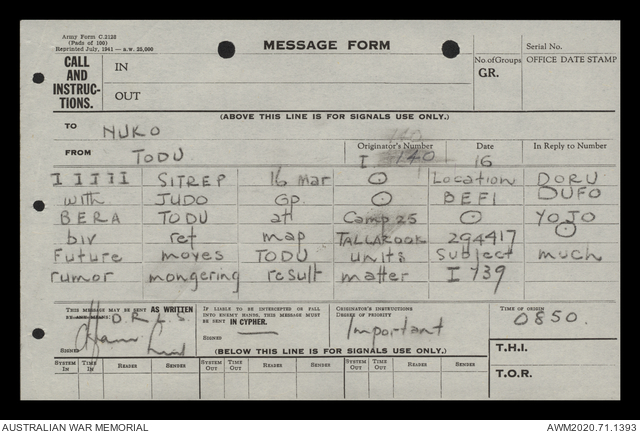 Army Form C.2128
(Pads of 100)
Reprinted July, 1941 — s.w. 25,000
MESSAGE FORM
Serial No.
CALL AND INSTRUC-TIONS.
IN
OUT
No. of Groups
GR.
OFFICE DATE STAMP
(ABOVE THIS LINE IS FOR SIGNALS USE ONLY.)
TO NUKO
FROM TODU
Originator's Number
I 140
Date
16
In Reply to Number
I I I I I SITREP 16 Mar ⊙ Location DORU
with JUDO GP ⊙ BEFI DUFO
BERA TODU at Camp 25 ⊙ YOJO
biv ref map TALLAROOK 294417 ⊙
Future moves TODU units Subject much
rumor mongering result matter I 739
THIS MESSAGE MAY BE SENT AS WRITTEN
D.R.L.S.
SIGNED
IF LIABLE TO BE INTERCEPTED OR FALL
INTO ENEMY HANDS, THIS MESSAGE MUST
BE SENT IN CYPHER.
SIGNED
ORIGINATOR'S INSTRUCTIONS
DEGREE OF PRIORITY
Important
TIME OF ORIGIN
0850.
T.H.I.
T.O.R.
(BELOW THIS LINE IS FOR SIGNALS USE ONLY.)
SYSTEM IN TIME IN READER SENDER SYSTEM OUT TIME OUT READER SENDER SYSTEM OUT TIME OUT READER SENDER
AUSTRALIAN WAR MEMORIAL
AWM2020.71.1393